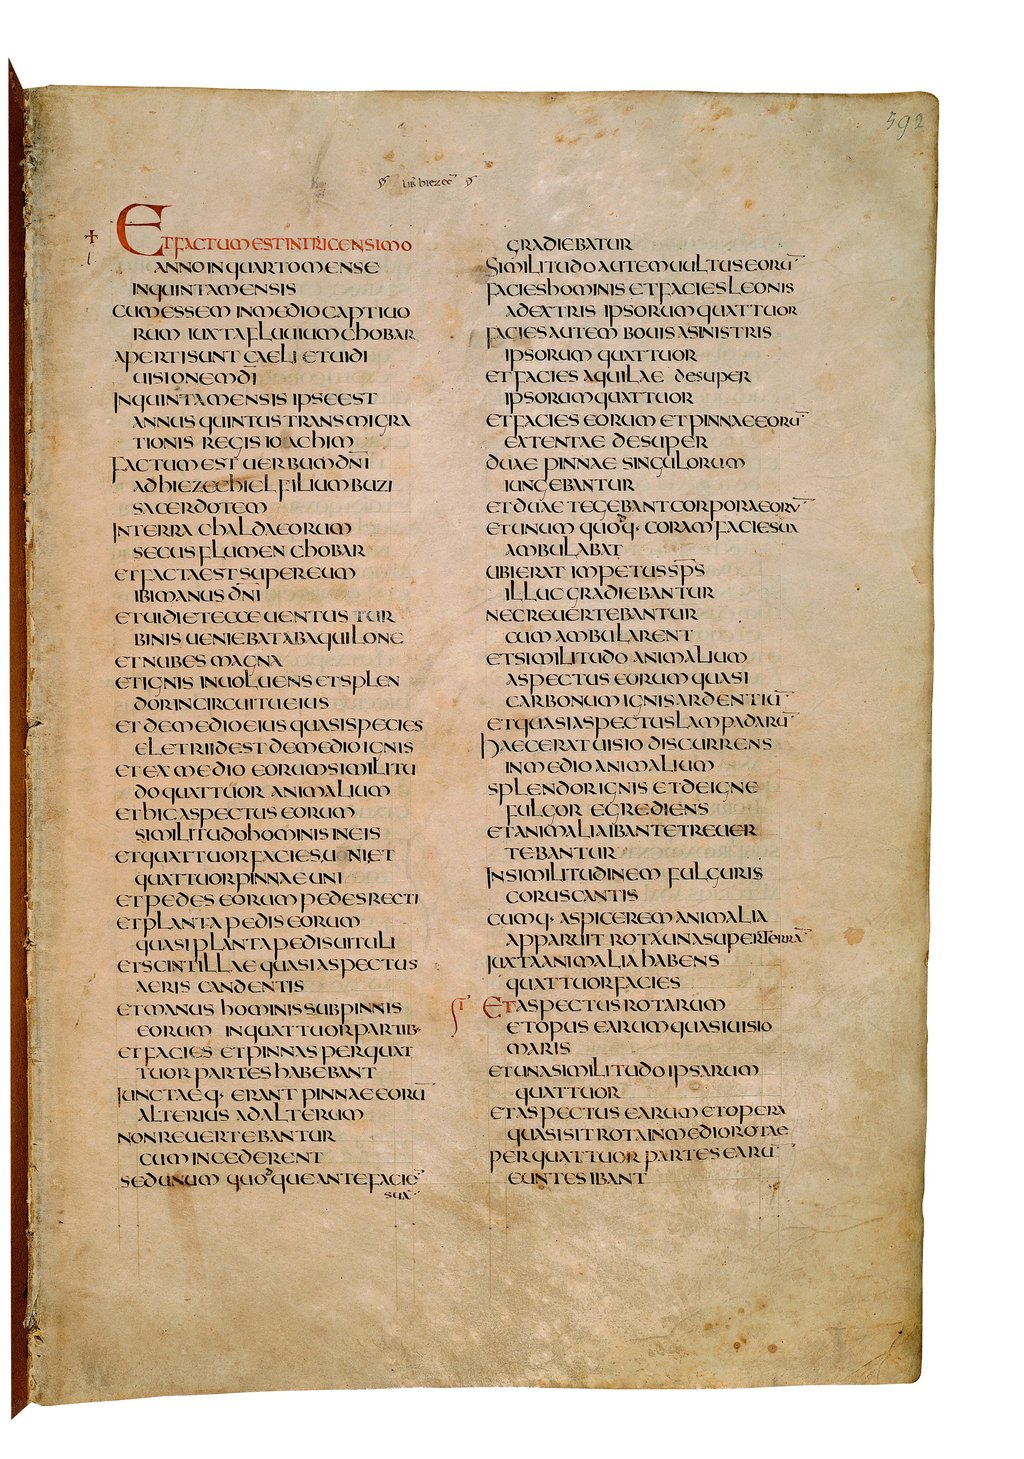 592
LIB HIEZEC
ET FACTUM EST IN TRICENSIMO
ANNO IN QUARTO MENSE
IN QUINTA MENSIS
CUM ESSEM IN MEDIO CAPTIUO
RUM IUXTA FLUUIUM CHOBAR
APERTI SUNT CAELI ET UIDI
UISIONEM DI
IN QUINTA MENSIS IPSE EST
ANNUS QUINTUS TRANSMIGRA
TIONIS REGIS IOACHIM
FACTUM EST UERBUM DNI
AD HIEZECHIEL FILIUM BUZI
SACERDOTEM
IN TERRA CHALDAEORUM
SECUS FLUMEN CHOBAR
ET FACTA EST SUPER EUM
IBI MANUS DNI
ET UIDI ET ECCE UENTUS TUR
BINIS UENIEBAT AB AQUILONE
ET NUBES MAGNA
ET IGNIS INUOLUENS ET SPLEN
DOR IN CIRCUITU EIUS
ET DE MEDIO EIUS QUASI SPECIES
ELETRI ID EST DE MEDIO IGNIS
ET EX MEDIO EORUM SIMILITU
DO QUATTUOR ANIMALIUM
ET HIC ASPECTUS EORUM
SIMILITUDO HOMINIS IN EIS
ET QUATTUOR FACIES UNI ET
QUATTUOR PINNAE UNI
ET PEDES EORUM PEDES RECTI
ET PLANTA PEDIS EORUM
QUASI PLANTA PEDIS UITULI
ET SCINTILLAE QUASI ASPECTUS
AERIS CANDENTIS
ET MANUS HOMINIS SUB PINNIS
EORUM IN QUATTUOR PARTIB·
ET FACIES ET PINNAS PER QUAT
TUOR PARTES HABEBANT
IUNCTAEQ· ERANT PINNAE EORŪ
ALTERIUS AD ALTERUM
NON REUERTEBANTUR
CUM INCEDERENT
SED UNUM QUODQUE ANTE FACIĒ
SUĀ
GRADIEBATUR
SIMILITUDO AUTEM UULTUS EORŪ
FACIES HOMINIS ET FACIES LEONIS
A DEXTRIS IPSORUM QUATTUOR
FACIES AUTEM BOUIS A SINISTRIS
IPSORUM QUATTUOR
ET FACIES AQUILAE DESUPER
IPSORUM QUATTUOR
ET FACIES EORUM ET PINNAE EORŪ
EXTENTAE DESUPER
DUAE PINNAE SINGULORUM
IUNGEBANTUR
ET DUAE TEGEBANT CORPORA EORŪ
ET UNUM QUODQ· CORAM FACIE SUA
AMBULABAT
UBI ERAT IMPETUS SPS
ILLUC GRADIEBANTUR
NEC REUERTEBANTUR
CUM AMBULARENT
ET SIMILITUDO ANIMALIUM
ASPECTUS EORUM QUASI
CARBONUM IGNIS ARDENTIŪ
ET QUASI ASPECTUS LAMPADARŪ
HAEC ERAT UISIO DISCURRENS
IN MEDIO ANIMALIUM
SPLENDOR IGNIS ET DE IGNE
FULGOR EGREDIENS
ET ANIMALIA IBANT ET REUER
TEBANTUR
IN SIMILITUDINEM FULGURIS
CORUSCANTIS
CUMQ· ASPICEREM ANIMALIA
APPARUIT ROTA UNA SUPER TERRĀ
IUXTA ANIMALIA HABENS
QUATTUOR FACIES
ET ASPECTUS ROTARUM
ET OPUS EARUM QUASI UISIO
MARIS
ET UNA SIMILITUDO IPSARUM
QUATTUOR
ET ASPECTUS EARUM ET OPERA
QUASI SIT ROTA IN MEDIO ROTAE
PER QUATTUOR PARTES EARŪ
EUNTES IBANT